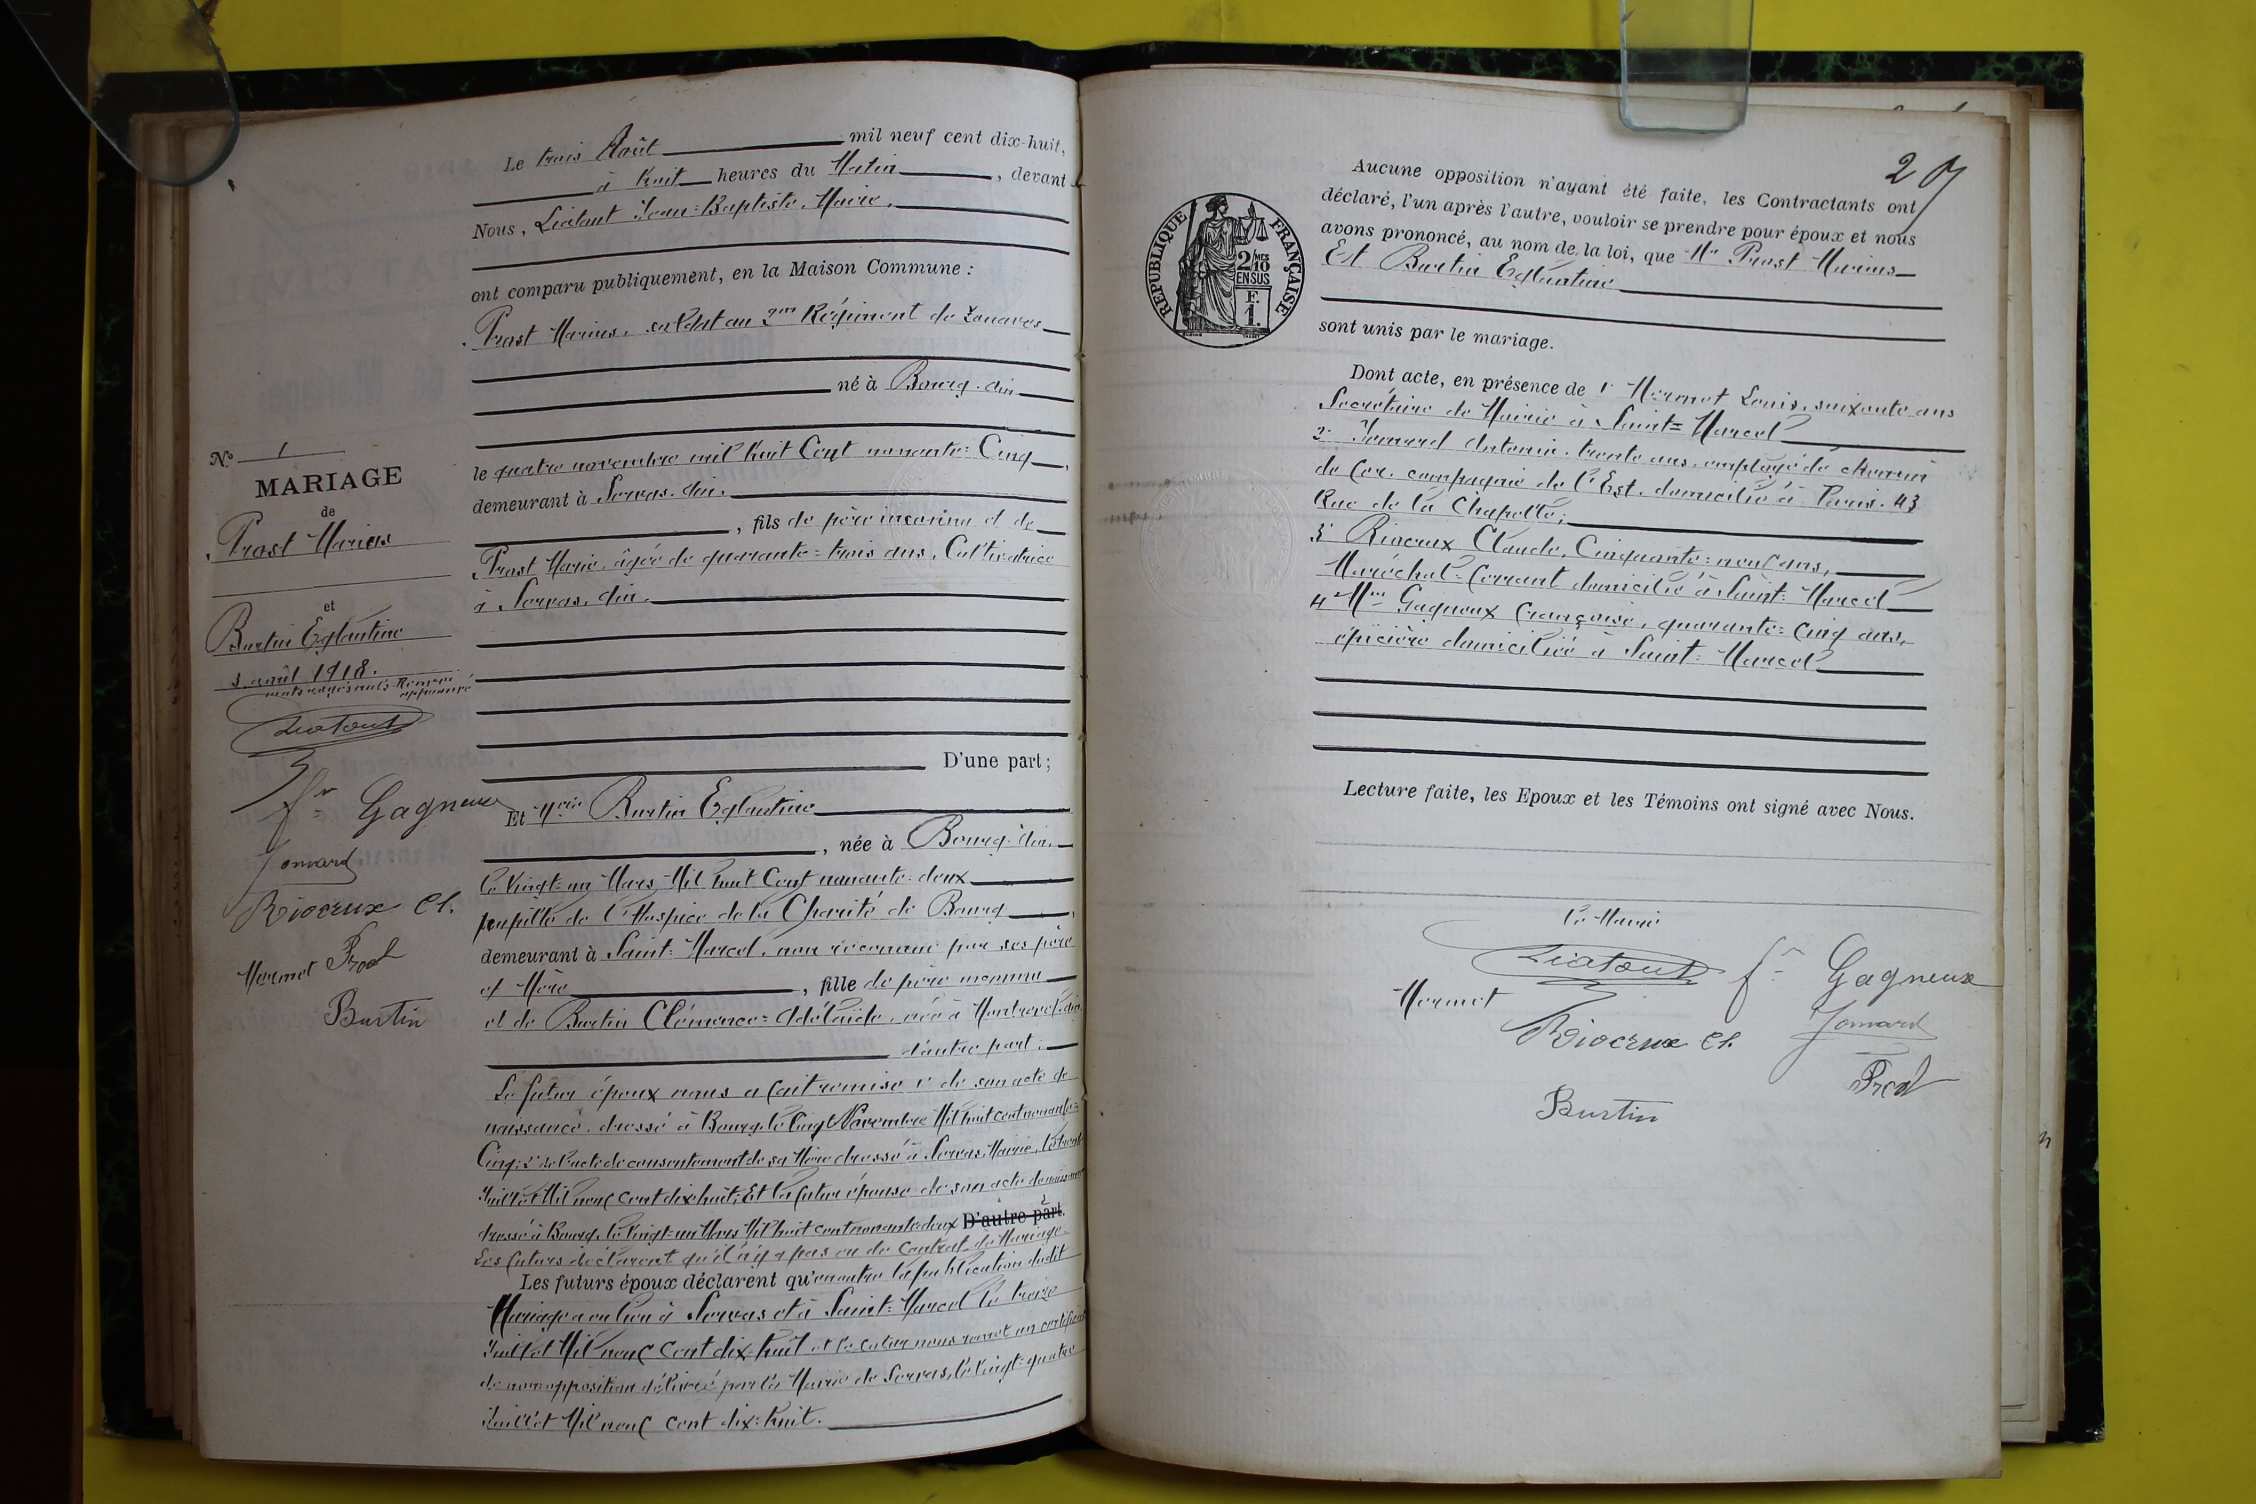 Le trois Août mil neuf cent dix-huit,
à huit heures du Matin, devant
Nous, Liatout Jean=Baptiste, Maire,
ont comparu publiquement, en la Maison Commune :
Prost Marius, soldat au 2me Régiment de Zouaves
né à Bourg. Ain
le quatre novembre mil huit Cent nonante=Cinq,
demeurant à Servas. Ain.
, fils de père inconnu et de
Prost Marie, âgée de quarante=trois ans, Cultivatrice
à Servas, Ain.
D'une part ;
Et Melle Burtin Eglantine
, née à Bourg. Ain,
le Vingt=un Mars, Mil huit Cent nonante=deux
pupille de l'Hospice de la Charité de Bourg,
demeurant à Saint=Marcel, non reconnue par ses père
et Mère, fille de père inconnu
et de Burtin Clémence=Adélaïde, née à Montrevel. Ain
d'autre part.
Le futur époux nous a fait remise 1° de son acte de
naissance, dressé à Bourg, le Cinq Novembre Mil huit cent nonante=
Cinq; 2° de l'acte de consentement de sa Mère dressé à Servas, Mairie, le trente
Juillet Mil neuf cent dix huit; Et la future épouse de son acte de naissance
dressé à Bourg, le Vingt=un Mars Mil huit cent nonante=deux D'autre part.
Les futurs déclarent qu'il n'y a pas eu de Contrat de Mariage
Les futurs époux déclarent qu'en outre la publication dudit
Mariage a eu lieu à Servas et à Saint=Marcel le treize
Juillet Mil neuf Cent dix=huit et le futur nous remet un certificat
de non opposition délivré par la Mairie de Servas, le Vingt=quatre
Juillet Mil neuf cent dix=huit.
N° 1
MARIAGE
de
Prost Marius
et
Burtin Eglantine
3 août 1918.
mots rayés nuls Renvoi
approuvé
Liatout
fse Gagneux
Jomard
Rioerux Cl.
Mermet Prost
Burtin
20
Aucune opposition n'ayant été faite, les Contractants ont
déclaré, l'un après l'autre, vouloir se prendre pour époux et nous
avons prononcé, au nom de la loi, que Mr Prost Marius
Et Burtin Eglantine
sont unis par le mariage.
RÉPUBLIQUE FRANÇAISE
2/10 MES
EN SUS
F.
1.
Dont acte, en présence de 1° Mermet Louis, soixante ans
Secrétaire de Mairie à Saint=Marcel
2° Jomard Antonin, trente ans, employé de chemin
de fer, compagnie de l'Est, domicilié à Paris. 43
Rue de la Chapelle;
3° Rioerux Claude, Cinquante=neuf ans,
Maréchal=ferrant domicilié à Saint=Marcel
4° Mme Gagneux Françoise, quarante=Cinq ans,
épicière domiciliée à Saint=Marcel
Lecture faite, les Epoux et les Témoins ont signé avec Nous.
Le Maire
Liatout
fse Gagneux
Mermet
Jomard
Rioerux Cl.
Prost
Burtin